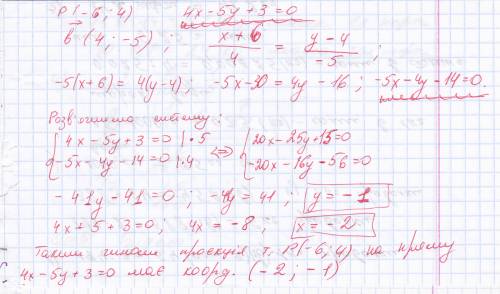 P(-6; 4)   4x-5y+3=0
b (4; -5), (x+6)/4 = (y-4)/-5 ;
-5(x+6)= 4(y-4); -5x-30=4y-16; -5x-4y-14=0.
Розв'яжемо систему:
{4x-5y+3=0 |·5 <=> {20x-25y+15=0
{-5x-4y-14=0 |·4 {-20x-16y-56=0
-41y-41=0; -41y=41; y=-1
4x+5+3=0; 4x=-8, x=-2
Таким чином проєкція т. P(-6; 4) на пряму
4x-5y+3=0 має коорд. (-2; -1)